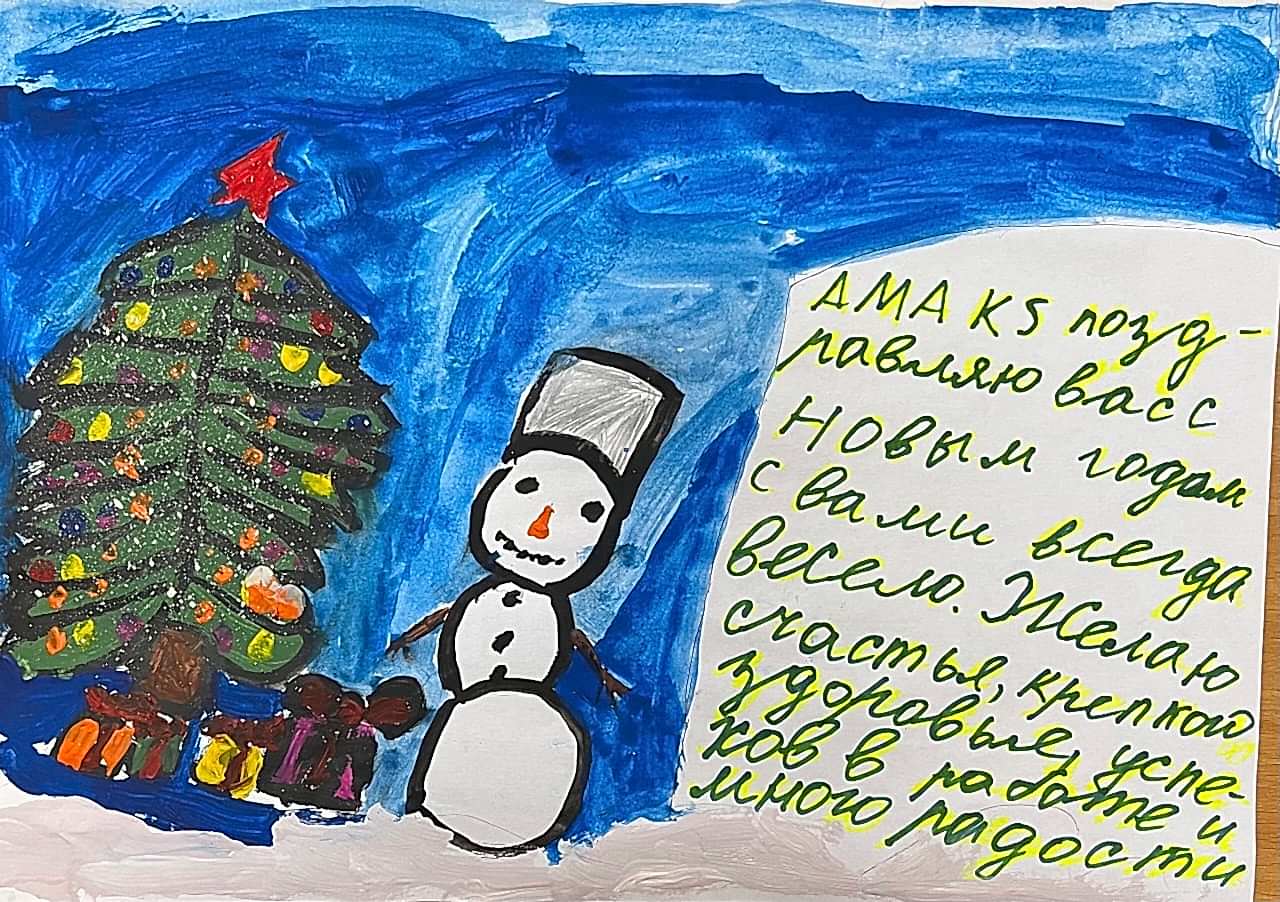 AMAKS позд-
равляю васс
Новым годом
с вами всегда
весело. Желаю
счастья, крепкой
здоровье, успе-
хов в работе и
много радости